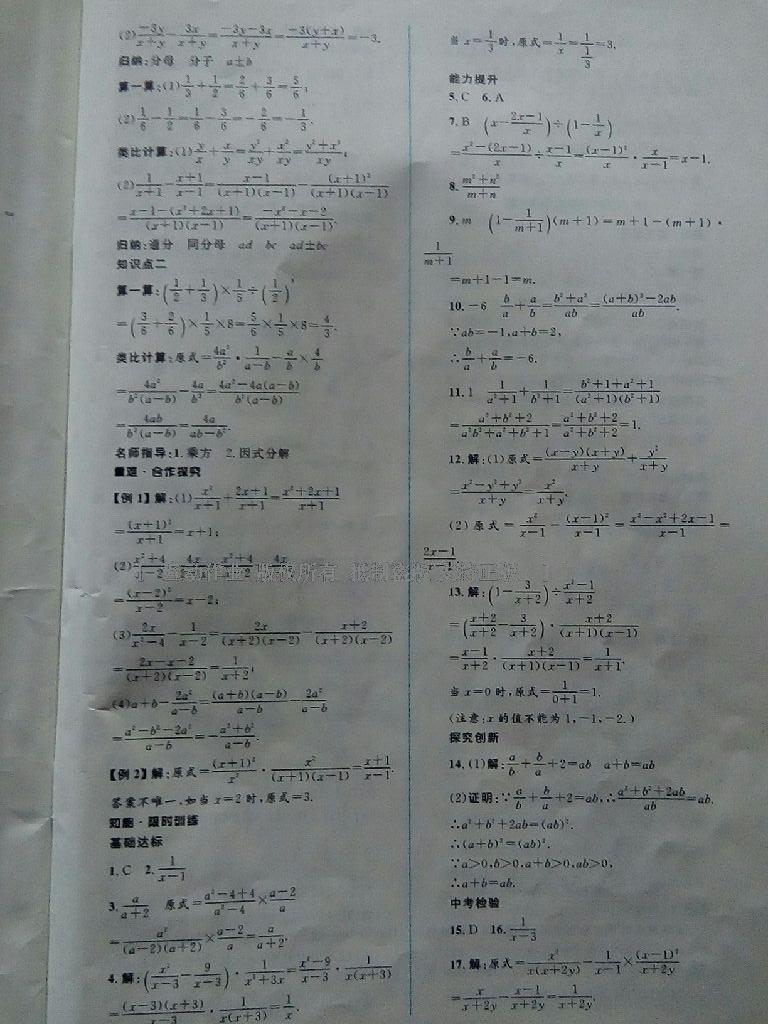 (2)\frac{-3y}{x+y}-\frac{3x}{x+y}=\frac{-3y-3x}{x+y}=\frac{-3(y+x)}{x+y}=-3.
归纳:分母 分子 a±b
算一算:(1)\frac{1}{3}+\frac{1}{2}=\frac{2}{6}+\frac{3}{6}=\frac{5}{6};
(2)\frac{1}{6}-\frac{1}{2}=\frac{1}{6}-\frac{3}{6}=-\frac{2}{6}=-\frac{1}{3}.
类比计算:(1)\frac{y}{x}+\frac{x}{y}=\frac{y²}{xy}+\frac{x²}{xy}=\frac{y²+x²}{xy};
(2)\frac{1}{x+1}-\frac{x+1}{x-1}=\frac{x-1}{(x+1)(x-1)}-\frac{(x+1)²}{(x+1)(x-1)}
=\frac{x-1-(x²+2x+1)}{(x+1)(x-1)}=\frac{-x²-x-2}{(x+1)(x-1)}.
归纳:通分 同分母 ad bc ad±bc
知识点二
算一算:(\frac{1}{2}+\frac{1}{3})×\frac{1}{5}÷(\frac{1}{2})³
=(\frac{3}{6}+\frac{2}{6})×\frac{1}{5}×8=\frac{5}{6}×\frac{1}{5}×8=\frac{4}{3}.
类比计算:原式=\frac{4a²}{b²}·\frac{1}{a-b}-\frac{a}{b}×\frac{4}{b}
=\frac{4a²}{b²(a-b)}-\frac{4a}{b²}=\frac{4a²-4a(a-b)}{b²(a-b)}
=\frac{4ab}{b²(a-b)}=\frac{4a}{ab-b²}.
名师指导:1.乘方 2.因式分解
重难·合作探究
【例1】解:(1)\frac{x²}{x+1}+\frac{2x+1}{x+1}=\frac{x²+2x+1}{x+1}
=\frac{(x+1)²}{x+1}=x+1;
(2)\frac{x²+4}{x-2}-\frac{4x}{x-2}=\frac{x²+4-4x}{x-2}
=\frac{(x-2)²}{x-2}=x-2;
(3)\frac{2x}{x²-4}-\frac{1}{x-2}=\frac{2x}{(x+2)(x-2)}-\frac{x+2}{(x+2)(x-2)}
=\frac{2x-x-2}{(x+2)(x-2)}=\frac{1}{x+2};
(4)a+b-\frac{2a²}{a-b}=\frac{(a+b)(a-b)}{a-b}-\frac{2a²}{a-b}
=\frac{a²-b²-2a²}{a-b}=-\frac{a²+b²}{a-b}.
【例2】解:原式=\frac{(x+1)²}{x²}·\frac{x²}{(x+1)(x-1)}=\frac{x+1}{x-1}.
答案不唯一,如当x=2时,原式=3.
知能·限时训练
基础达标
1.C 2.\frac{1}{x-1}
3.\frac{a}{a+2} 原式=\frac{a²-4+4}{a²-4}×\frac{a-2}{a}
=\frac{a²}{(a-2)(a+2)}×\frac{a-2}{a}=\frac{a}{a+2}.
4.解:(\frac{x²}{x-3}-\frac{9}{x-3})·\frac{1}{x²+3x}=\frac{x²-9}{x-3}·\frac{1}{x(x+3)}
=\frac{(x-3)(x+3)}{x-3}·\frac{1}{x(x+3)}=\frac{1}{x}.
当x=\frac{1}{3}时,原式=\frac{1}{x}=\frac{1}{\frac{1}{3}}=3.
能力提升
5.C 6.A
7.B (x-\frac{2x-1}{x})÷(1-\frac{1}{x})
=\frac{x²-(2x-1)}{x}÷\frac{x-1}{x}=\frac{(x-1)²}{x}·\frac{x}{x-1}=x-1.
8.\frac{m²+n²}{m+n}
9.m (1-\frac{1}{m+1})(m+1)=m+1-(m+1)·
\frac{1}{m+1}
=m+1-1=m.
10.-6 \frac{b}{a}+\frac{a}{b}=\frac{b²+a²}{ab}=\frac{(a+b)²-2ab}{ab}.
∵ab=-1,a+b=2,
∴\frac{b}{a}+\frac{a}{b}=-6.
11.1 \frac{1}{a²+1}+\frac{1}{b²+1}=\frac{b²+1+a²+1}{(a²+1)(b²+1)}
=\frac{a²+b²+2}{a²b²+a²+b²+1}=\frac{a²+b²+2}{a²+b²+2}=1.
12.解:(1)原式=\frac{(x-y)(x+y)}{x+y}+\frac{y²}{x+y}
=\frac{x²-y²+y²}{x+y}=\frac{x²}{x+y}.
(2)原式=\frac{x²}{x-1}-\frac{(x-1)²}{x-1}=\frac{x²-x²+2x-1}{x-1}=
\frac{2x-1}{x-1}.
13.解:(1-\frac{3}{x+2})÷\frac{x²-1}{x+2}
=(\frac{x+2}{x+2}-\frac{3}{x+2})·\frac{x+2}{(x+1)(x-1)}
=\frac{x-1}{x+2}·\frac{x+2}{(x+1)(x-1)}=\frac{1}{x+1}.
当x=0时,原式=\frac{1}{0+1}=1.
(注意:x的值不能为1,-1,-2.)
探究创新
14.(1)解:\frac{a}{b}+\frac{b}{a}+2=ab a+b=ab
(2)证明:∵\frac{a}{b}+\frac{b}{a}+2=ab,∴\frac{a²+b²+2ab}{ab}=ab.
∴a²+b²+2ab=(ab)².
∴(a+b)²=(ab)².
∵a>0,b>0,a+b>0,ab>0,
∴a+b=ab.
中考检验
15.D 16.\frac{1}{x-3}
17.解:原式=\frac{x²}{x(x+2y)}-\frac{1}{x-1}×\frac{(x-1)²}{x+2y}
=\frac{x}{x+2y}-\frac{x-1}{x+2y}=\frac{1}{x+2y}.